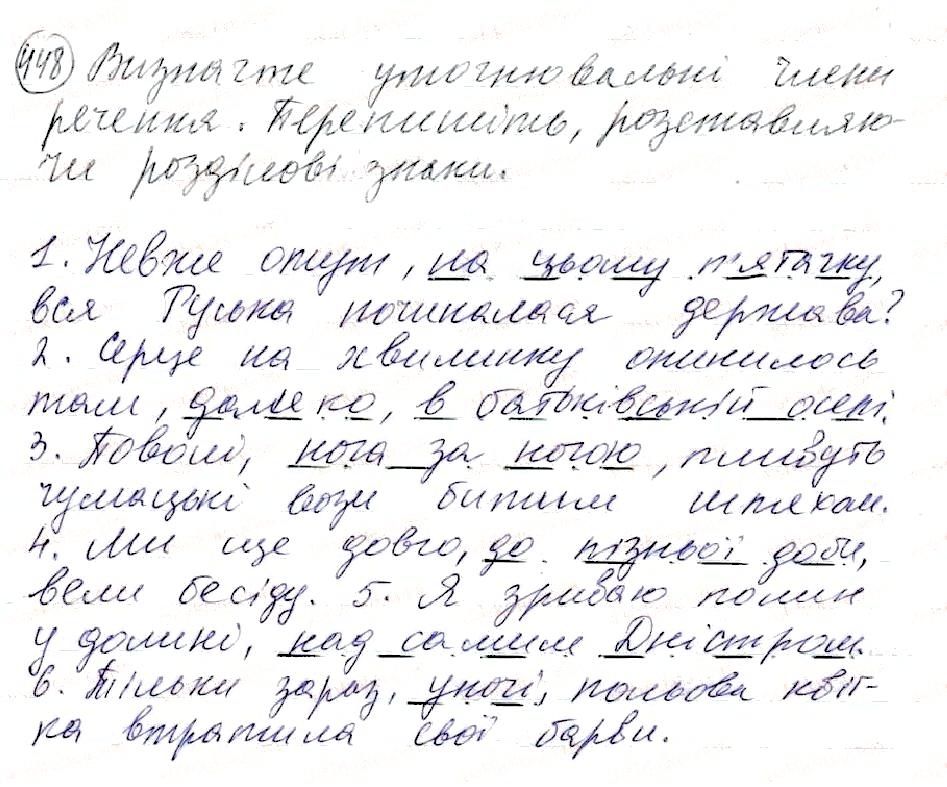 448 Визначте уточнювальні члени
речення. Перепишіть, розставляю-
чи розділові знаки.
1. Невже отут, на цьому п'ятачку,
вся Руська починалася держава?
2. Серце на хвилинку опинилось
там, далеко, в батьківській оселі.
3. Поволі, нога за ногою, пливуть
чумацькі вози битим шляхом.
4. Ми ще довго, до пізньої доби,
вели бесіду. 5. Я зриваю полин
у долині, над самим Дністром.
6. Тільки зараз, уночі, польова квіт-
ка втратила свої барви.